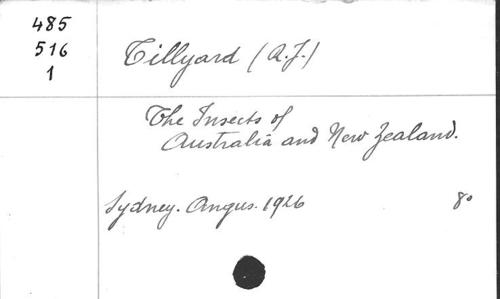 485
516
1
Tillyard (A.J.)
The Insects of
Australia and New Zealand.
Sydney. Angus. 1926 8o